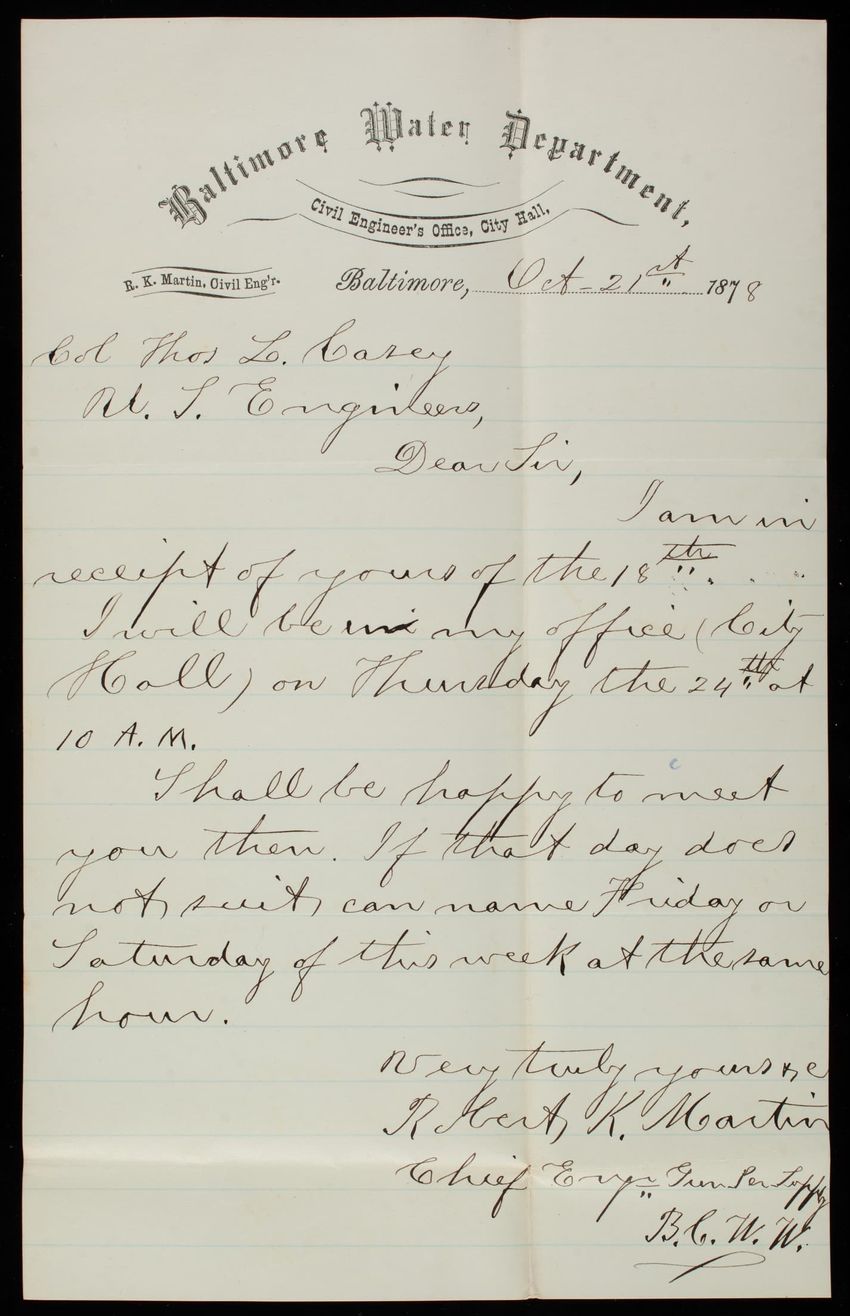 Baltimore Water Department,
Civil Engineer's Office, City Hall,
R. K. Martin, Civil Eng'r.
Baltimore, Oct - 21st 1878
Col Thos L. Casey
U. S. Engineers,
Dear Sir,
I am in
receipt of yours of the 18th.
I will be in my office (City
Hall) on Thursday the 24th at
10 A. M.
Shall be happy to meet
you then. If that day does
not suit, can name Friday or
Saturday of this week at the same
hour.
Very truly yours &c
Robert K. Martin
Chief Engr Gun Per Supply
B. C. W. W.